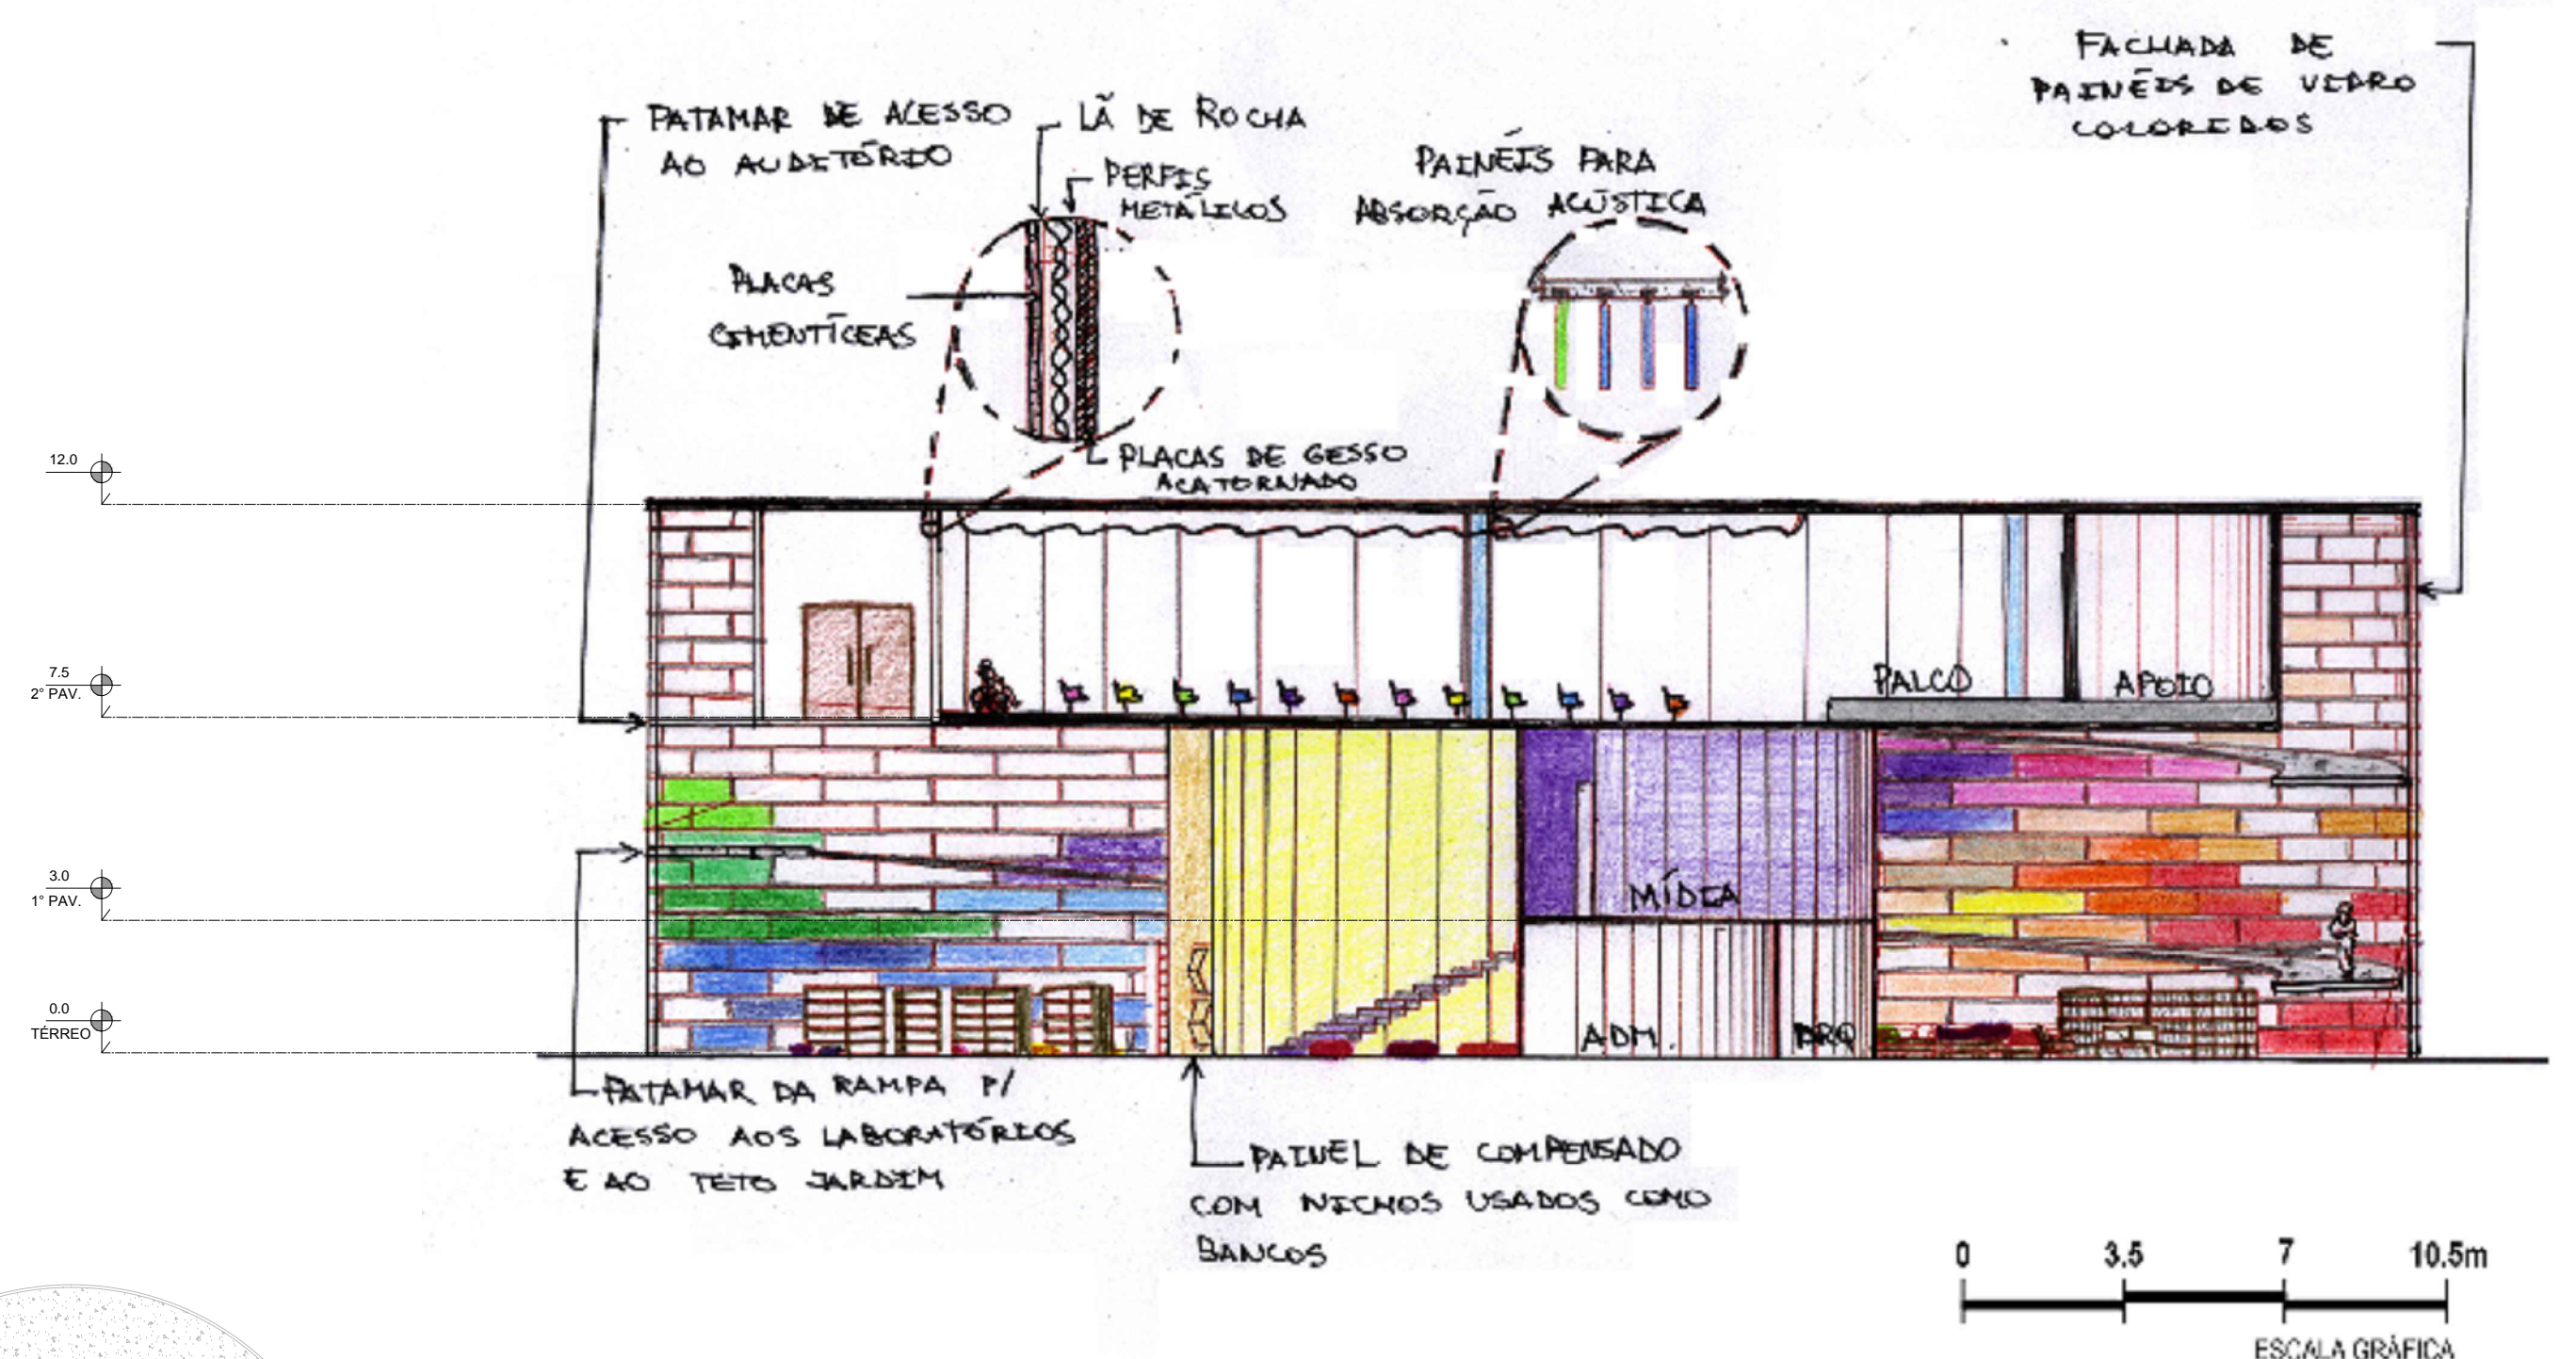 FACHADA DE
PAINÉIS DE VIDRO
COLORIDOS
PATAMAR DE ACESSO
AO AUDITÓRIO
LÃ DE ROCHA
PERFIS
METÁLICOS
PLACAS
CIMENTÍCEAS
PAINÉIS PARA
ABSORÇÃO ACÚSTICA
PLACAS DE GESSO
ACATORNADO
12.0
7.5
2° PAV.
3.0
1° PAV.
0.0
TÉRREO
PALCO
APOIO
MÍDIA
ADM.
PATAMAR DA RAMPA P/
ACESSO AOS LABORATÓRIOS
E AO TETO JARDIM
PAINEL DE COMPENSADO
COM NICHOS USADOS COMO
BANCOS
0 3.5 7 10.5m
ESCALA GRÁFICA